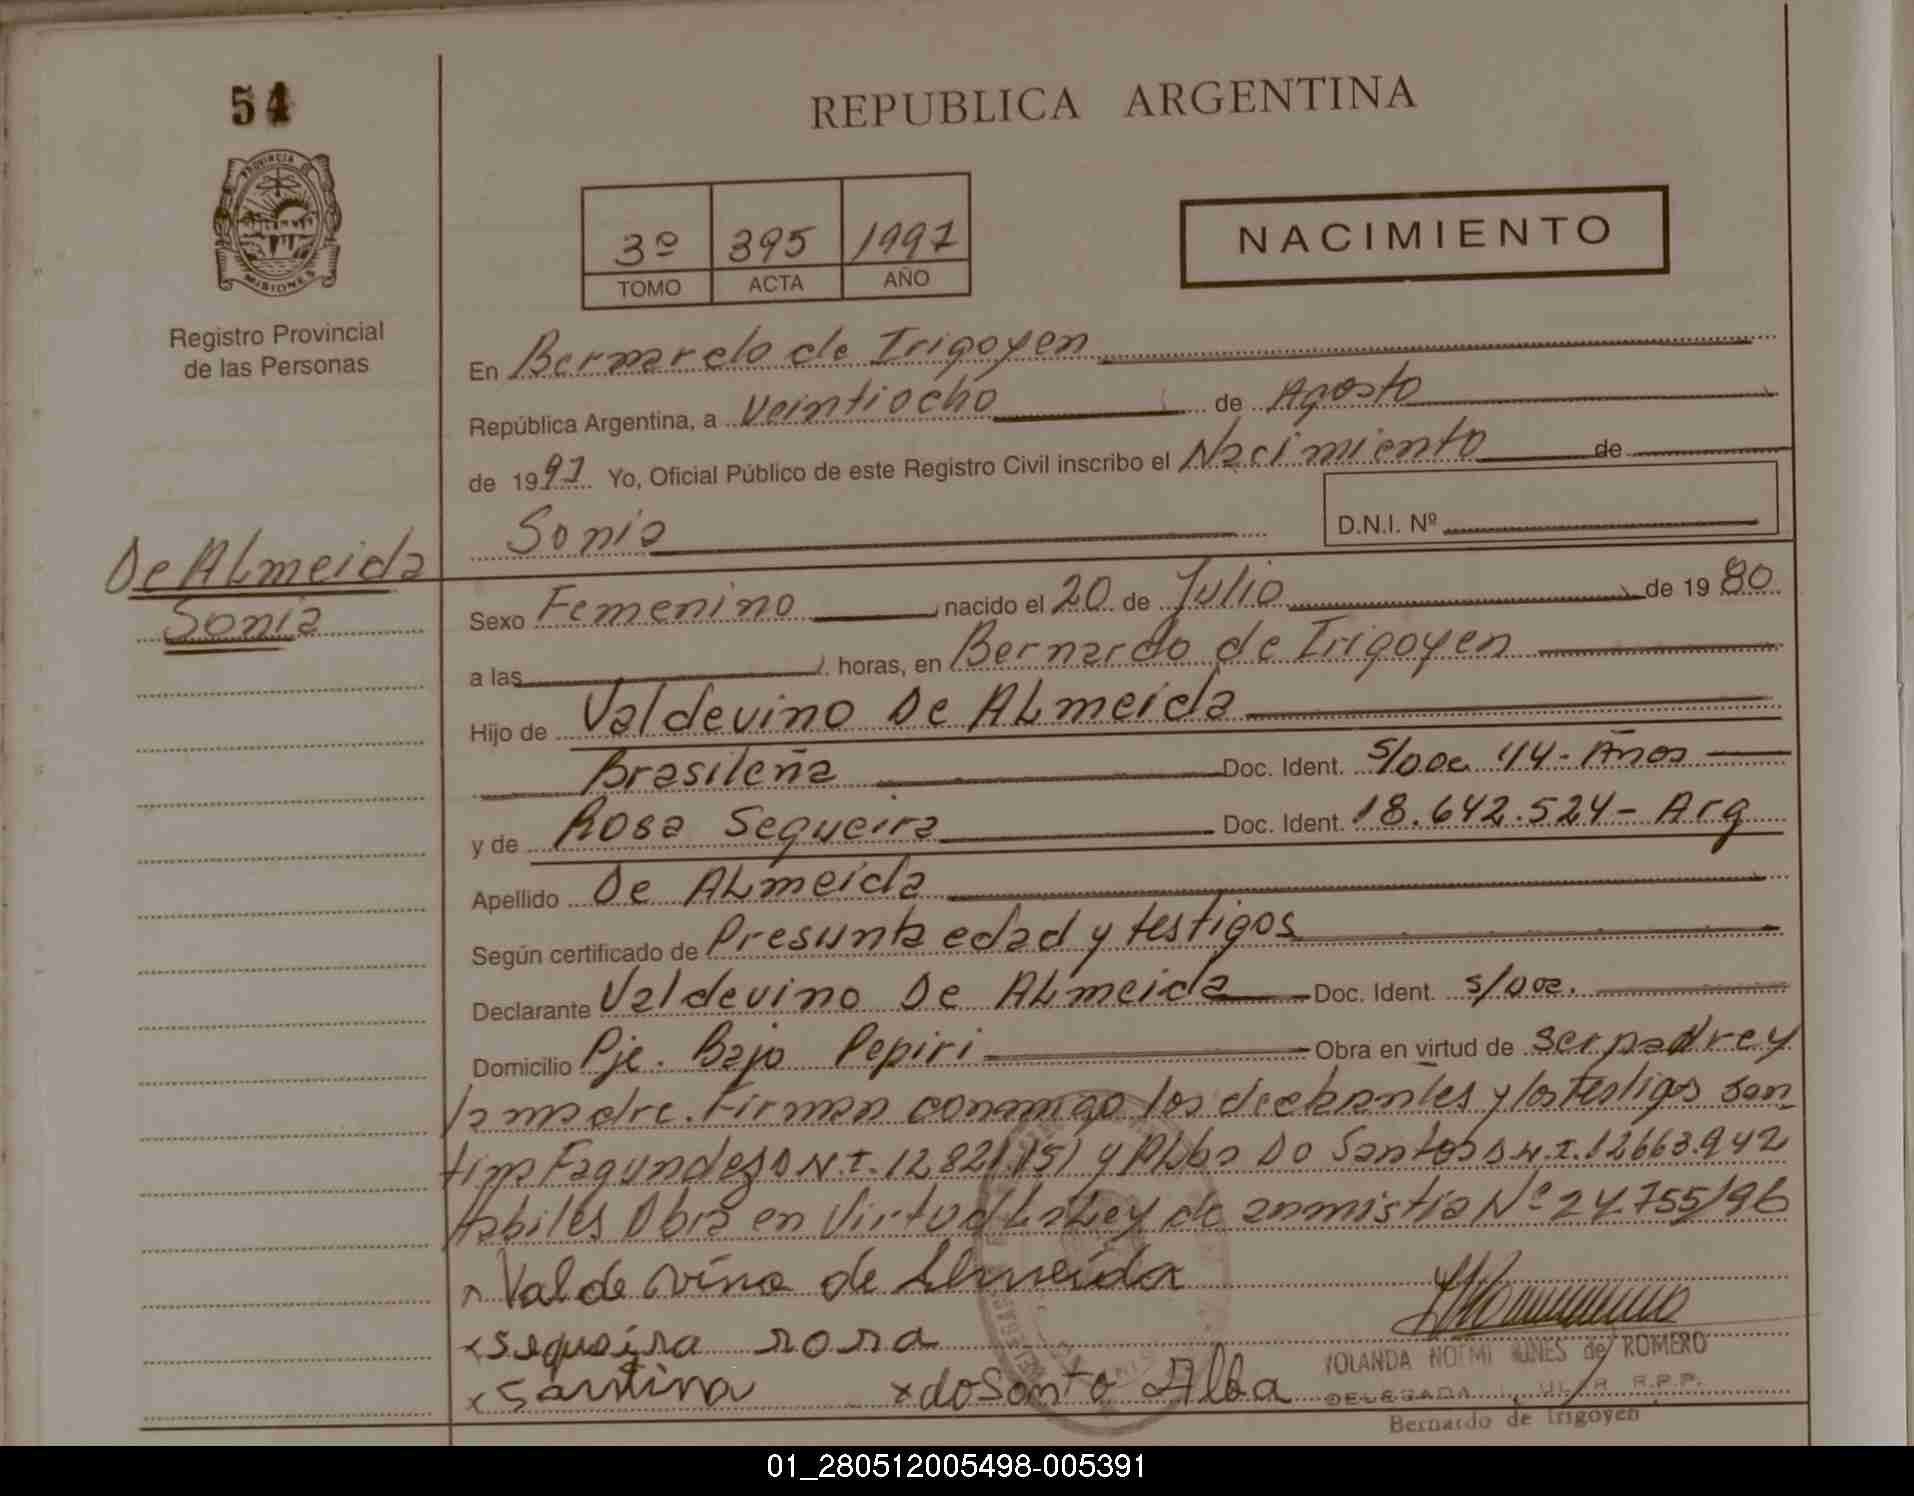 54
REPUBLICA ARGENTINA
PROVINCIA
MISIONES
3º 395 1997
TOMO ACTA AÑO
NACIMIENTO
Registro Provincial
de las Personas
En Bernardo de Irigoyen
República Argentina, a Veintiocho de Agosto
de 1997. Yo, Oficial Público de este Registro Civil inscribo el Nacimiento de
Sonia D.N.I. Nº
De ALmeida
Sonia
Sexo Femenino nacido el 20 de Julio de 1980
a las horas, en Bernardo de Irigoyen
Hijo de Valdevino De ALmeida
Brasileña Doc. Ident. S/Doc 44-Años
y de Rosa Sequeira Doc. Ident. 18.642.524- Arg
Apellido De ALmeida
Según certificado de Presunta edad y testigos
Declarante Valdevino De ALmeida Doc. Ident. s/Doc.
Domicilio Pje. Bajo Pepiri Obra en virtud de ser padre y
la madre. Firman conmigo los declarantes y los testigos San
tina Fagundes D.N.I. 12821151 y ALba Do Santos D.N.I. 12663.942
Habiles Obra en Virtud La Ley de anmistia Nº 24.755/96
x Valde vino de Almeida
x Sequeira rosa
x Santina x do Santo Alba
YOLANDA NOEMI de ROMERO
DELEGADA R.P.P.
Bernardo de Irigoyen
01_280512005498-005391